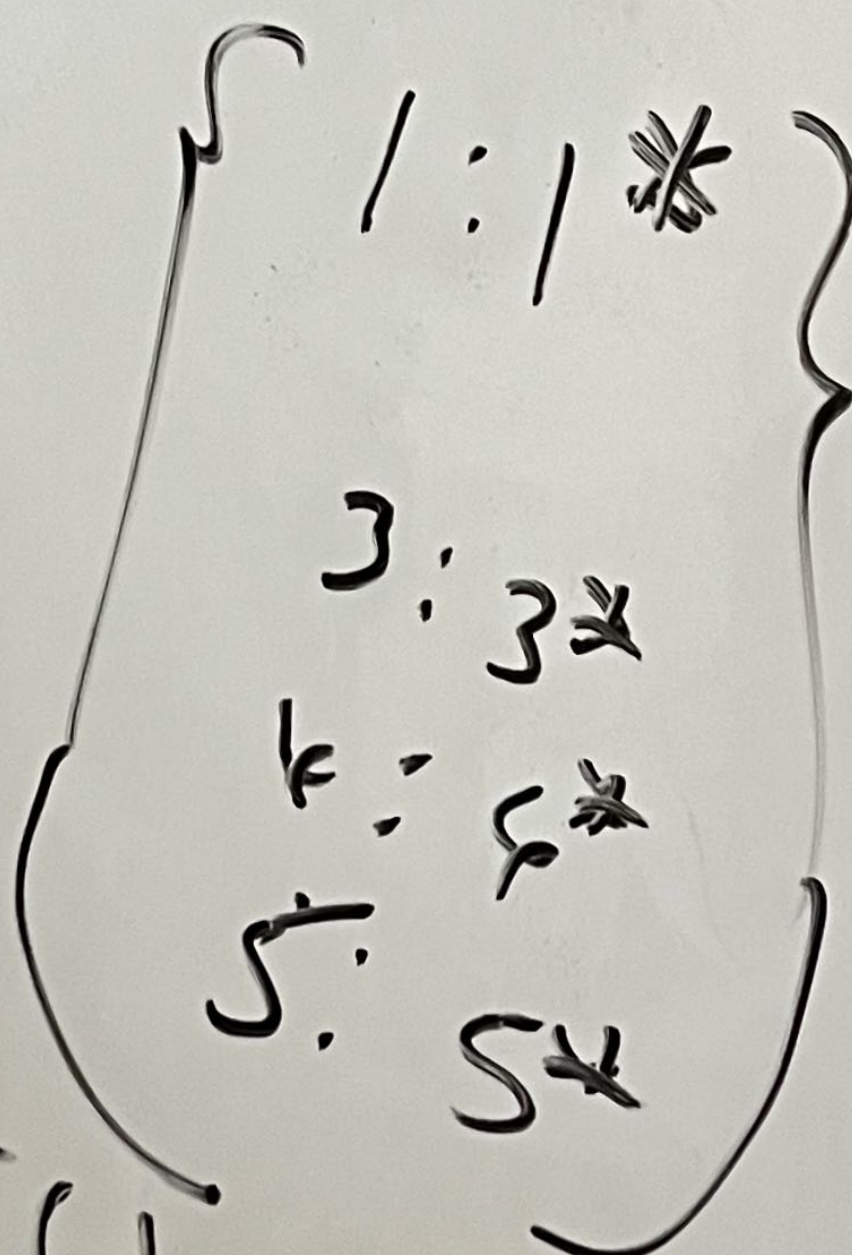 { 1 : 1* }
3 : 3*
k : 4*
5 : 5*